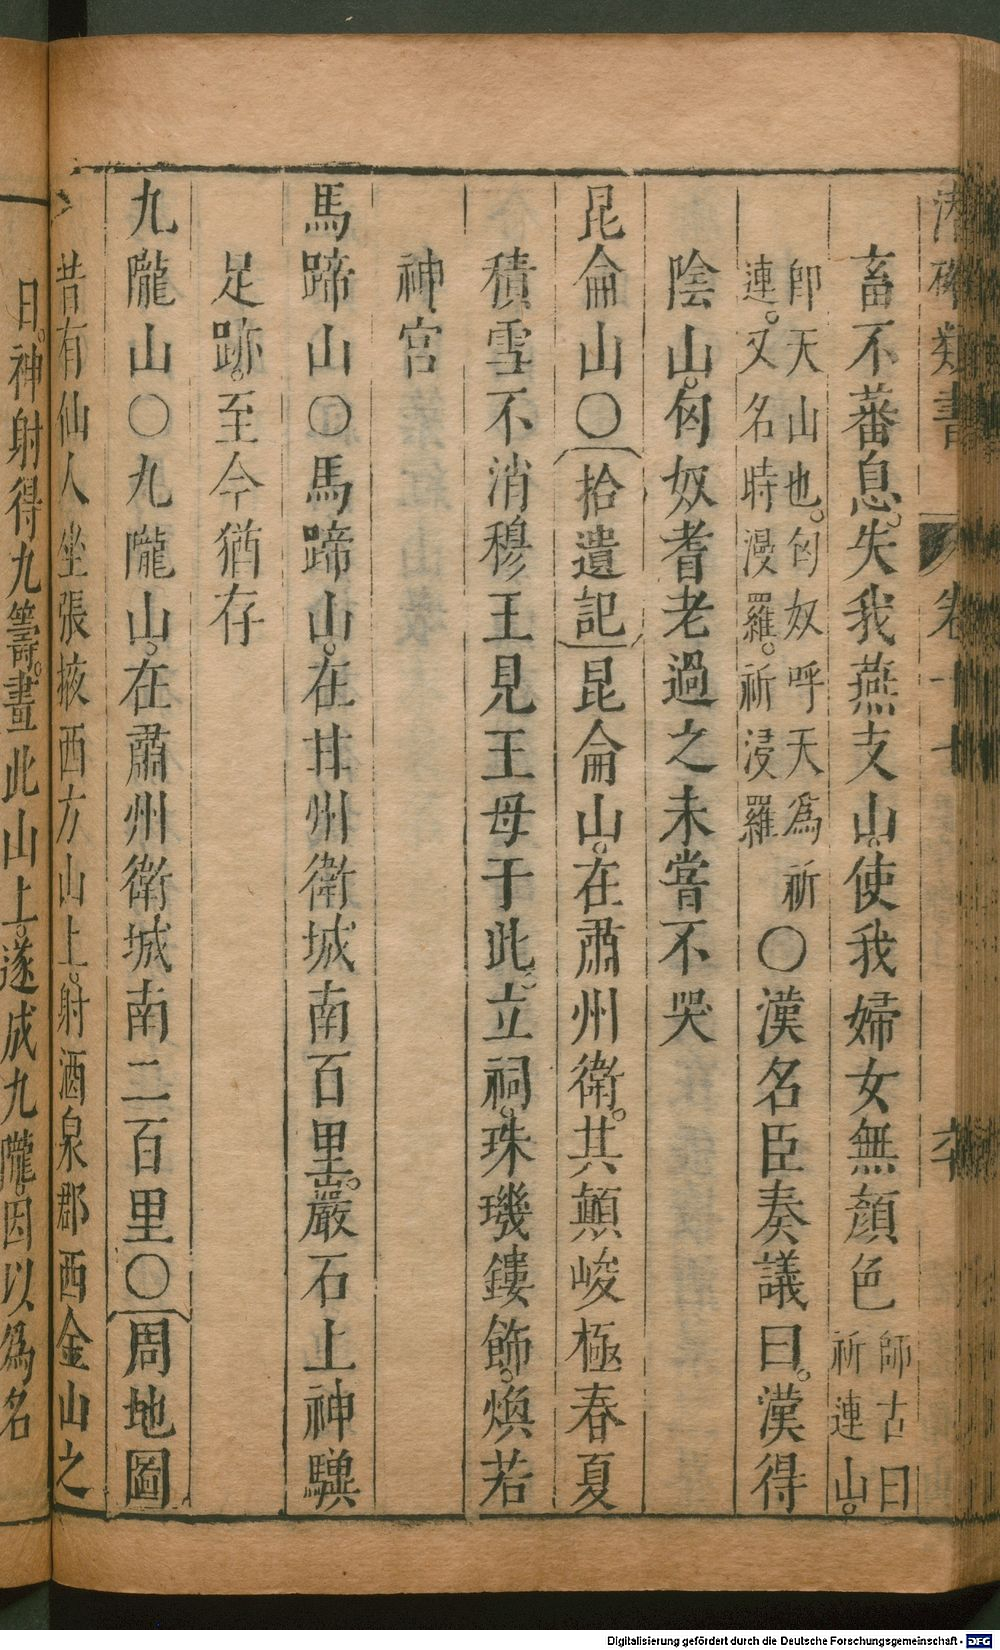 潛確類書 卷二十
畜不蕃息。失我燕支山。使我婦女無顏色 師古曰祁連山。
卽天山也。匈奴呼天為祈連。又名時漫羅。祈浸羅 〇漢名臣奏議曰。漢得
陰山。匈奴耆老過之未嘗不哭
昆侖山〇拾遺記昆侖山。在肅州衛。其顛峻極春夏
積雪不消穆王見王母于此。立祠。珠璣鏤飾。煥若
神宮
馬蹄山〇馬蹄山。在甘州衛城南百里。巖石上神驥
足跡。至今猶存
九隴山〇九隴山。在肅州衛城南二百里〇周地圖
昔有仙人坐張掖西方山上。射酒泉郡西金山之
日。神射得九籌。畫此山上。遂成九隴。因以為名
Digitalisierung gefördert durch die Deutsche Forschungsgemeinschaft - DFG